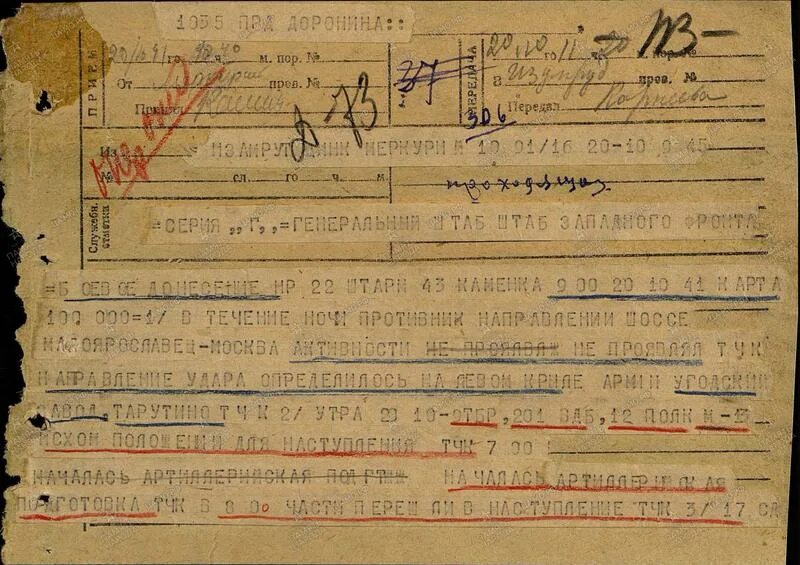 1035 ПВД ДОРОНИНА::
ПРИЕМ
20/10 41 го
м. пор. №
От
прев. №
Принял
37
73
ПЕРЕДАЧА
20 10 го
пор. №
В Изумруд
прев. №
Передал
306
Из ИЗУМРУД МЕРКУРИ 16 20-10 9 45
№ сл. го ч. м.
Служебн. отметки
=СЕРИЯ „Г„=ГЕНЕРАЛЬНЫЙ ШТАБ ШТАБ ЗАПАДНОГО ФРОНТА
=БОЕВОЕ ДОНЕСЕНИЕ НР 22 ШТАРМ 43 КАМЕНКА 9 00 20 10 41 КАРТА
100 000=1/ В ТЕЧЕНИЕ НОЧИ ПРОТИВНИК НАПРАВЛЕНИИ ШОССЕ
МАЛОЯРОСЛАВЕЦ-МОСКВА АКТИВНОСТИ НЕ ПРОЯВЛЯЛ ТЧК
НАПРАВЛЕНИЕ УДАРА ОПРЕДЕЛИЛОСЬ НА ЛЕВОМ КРИЛЕ АРМИИ УГОДСКИЙ
ЗАВОД, ТАРУТИНО ТЧК 2/ УТРА 20 10-9ТБР, 201 ВДБ, 12 ПОЛК М-13
ИСХОМ ПОЛОЖЕНИИ ДЛЯ НАСТУПЛЕНИЯ ТЧК 7 00
НАЧАЛАСЬ АРТИЛЛЕРИЙСКАЯ НАЧАЛАСЬ АРТИЛЛЕРИЙСКАЯ
ПОДГОТОВКА ТЧК В 8 00 ЧАСТИ ПЕРЕШЛИ В НАСТУПЛЕНИЕ ТЧК 3/ 17 СД